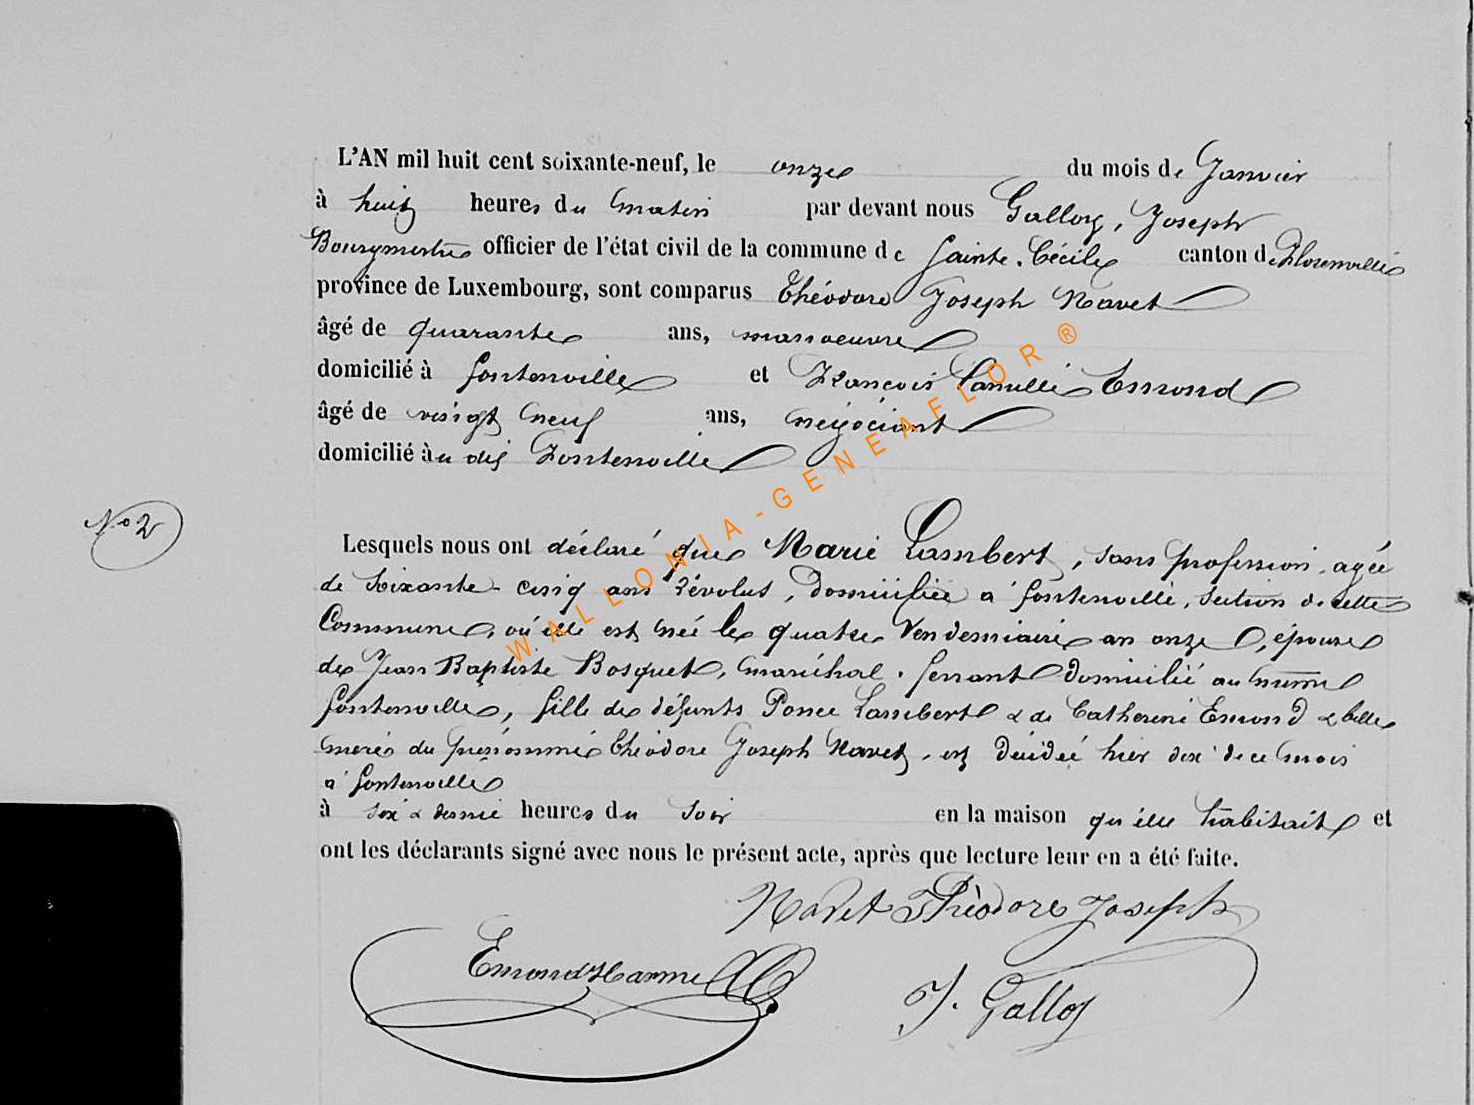 L'AN mil huit cent soixante-neuf, le onze du mois de Janvier
à huit heures du matin par devant nous Galloy, Joseph
Bourgmestre officier de l'état civil de la commune de Sainte-Cécile canton de Florenville
province de Luxembourg, sont comparus Théodore Joseph Navet
âgé de quarante ans, manoeuvre
domicilié à fontenoille et François Camille Emond
âgé de vingt neuf ans, négociant
domicilié àu dit Fontenoille
No 2
Lesquels nous ont déclaré que Marie Lambert, sans profession, agée
de Soixante-cinq ans révolus, domiciliée à fontenoille, Section de cette
Commune, où elle est née le quatre Vendemiaire an onze, épouse
de Jean Baptiste Bosquet, maréchal-ferrant domicilié au même
fontenoille, fille de défunts Ponce Lambert & de Catherine Emond & belle
mere du prénommé Théodore Joseph Navet, est décédée hier dix de ce mois
à fontenoille
à six & demie heures du soir en la maison qu'elle habitait et
ont les déclarants signé avec nous le présent acte, après que lecture leur en a été faite.
Navet Théodore Joseph
Emond
J. Galloy
WALLONIA-GENEAFLOR ®